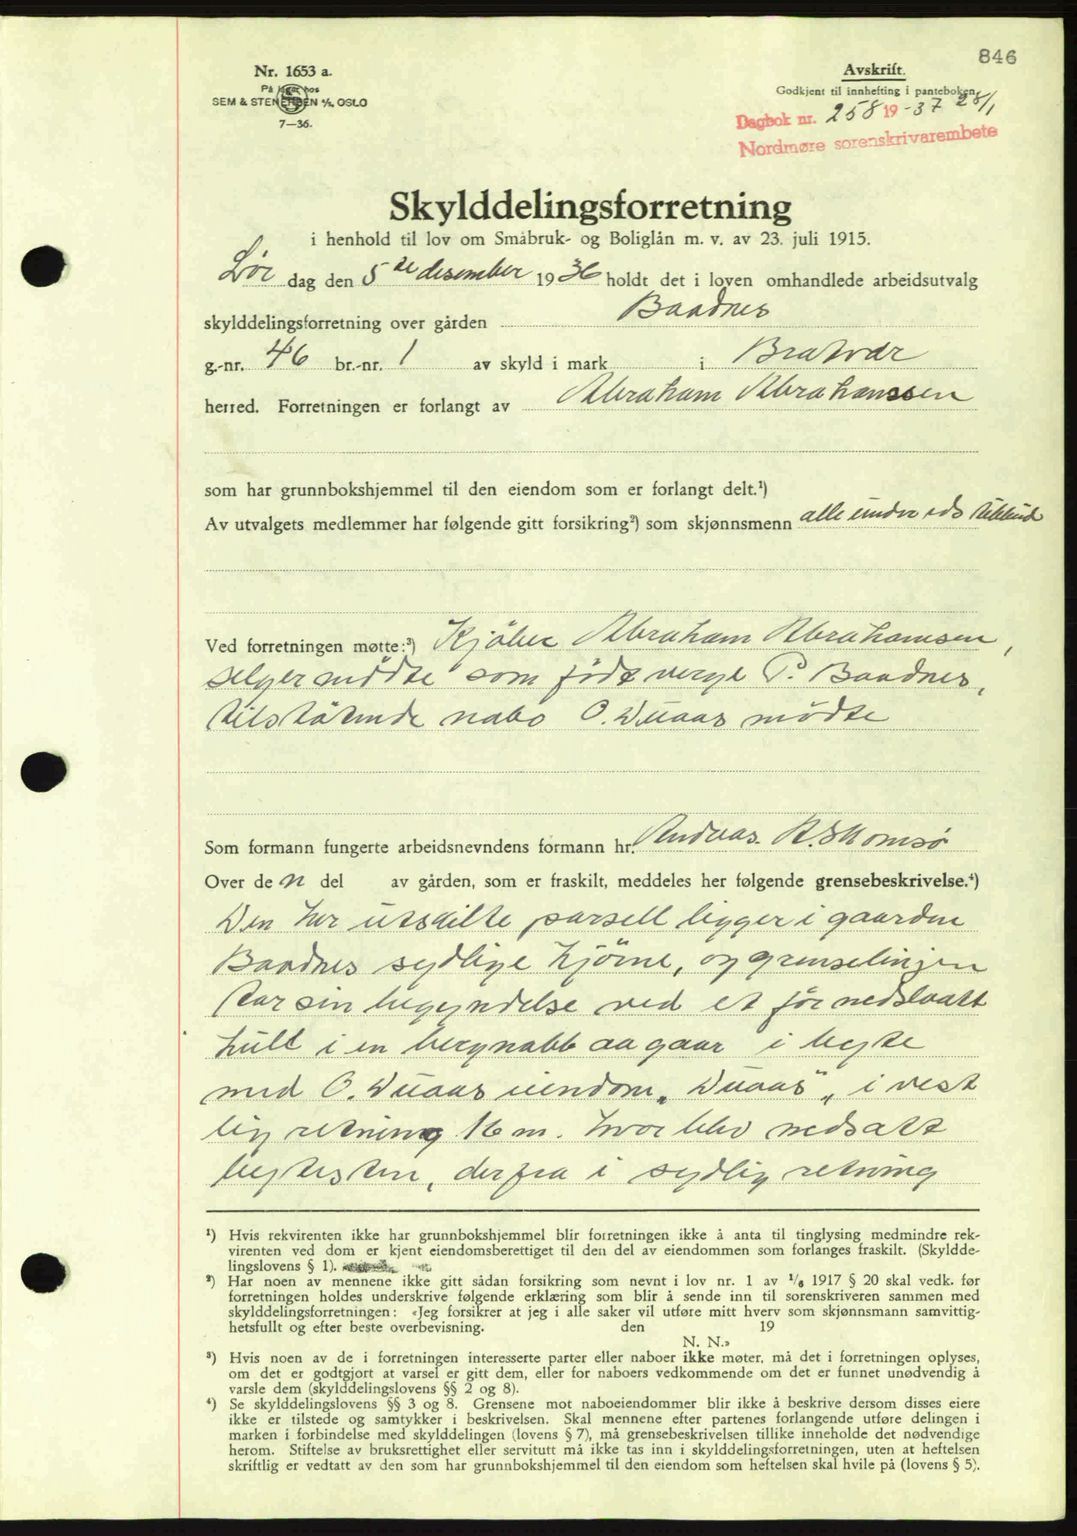 846
Nr. 1653 a.
På lager hos
SEM & STENERSEN A/S, OSLO
7—36.
Avskrift.
Godkjent til innhefting i panteboken 28/1
Dagbok nr. 258 19-37
Nordmøre sorenskrivarembete
Skylddelingsforretning
i henhold til lov om Småbruk- og Boliglån m. v. av 23. juli 1915.
Lør dag den 5 te desember 1936 holdt det i loven omhandlede arbeidsutvalg
skylddelingsforretning over gården Baadnes
g.-nr. 46 br.-nr. 1 av skyld i mark i Bratvær
herred. Forretningen er forlangt av Abraham Abrahamssen
som har grunnbokshjemmel til den eiendom som er forlangt delt.¹)
Av utvalgets medlemmer har følgende gitt forsikring²) som skjønnsmenn alle
Ved forretningen møtte:³) Kjöber Abraham Abrahamsen,
selger mödte som födeverge P. Baadnes,
tilstötende nabo O. Wuaas mödte
Som formann fungerte arbeidsnevndens formann hr. Andreas
Over den del av gården, som er fraskilt, meddeles her følgende grensebeskrivelse.⁴)
Den her utskilte parsell ligger i gaarden
Baadnes sydlige hjörne, og grenselinjen
tar sin begyndelse ved et för nedslaatt
hull i en bergnabb aa gaar i bytte
med O. Wuaas eiendom „Wuaas", i vest
lig retning 16 m. hvor blev nedsatt
byttesten, derfra i sydlig retning
¹) Hvis rekvirenten ikke har grunnbokshjemmel blir forretningen ikke å anta til tinglysing medmindre rek-
virenten ved dom er kjent eiendomsberettiget til den del av eiendommen som forlanges fraskilt. (Skyldde-
lingslovens § 1).
²) Har noen av mennene ikke gitt sådan forsikring som nevnt i lov nr. 1 av 1/6 1917 § 20 skal vedk. før
forretningen holdes underskrive følgende erklæring som blir å sende inn til sorenskriveren sammen med
skylddelingsforretningen: «Jeg forsikrer at jeg i alle saker vil utføre mitt hverv som skjønnsmann samvittig-
hetsfullt og efter beste overbevisning. den 19
N. N.»
³) Hvis noen av de i forretningen interesserte parter eller naboer ikke møter, må det i forretningen oplyses,
om det er godtgjort at varsel er gitt dem, eller for naboers vedkommende om det er funnet unødvendig å
varsle dem (skylddelingslovens §§ 2 og 8).
⁴) Se skylddelingslovens §§ 3 og 8. Grensene mot naboeiendommer blir ikke å beskrive dersom disses eiere
ikke er tilstede og samtykker i beskrivelsen. Skal mennene efter partenes forlangende utføre delingen i
marken i forbindelse med skylddelingen (lovens § 7), må grensebeskrivelsen tillike inneholde det nødvendige
herom. Stiftelse av bruksrettighet eller servitutt må ikke tas inn i skylddelingsforretningen, uten at heftelsen
skriftlig er vedtatt av den som har grunnbokshjemmel til den eiendom som heftelsen skal hvile på (lovens § 5).